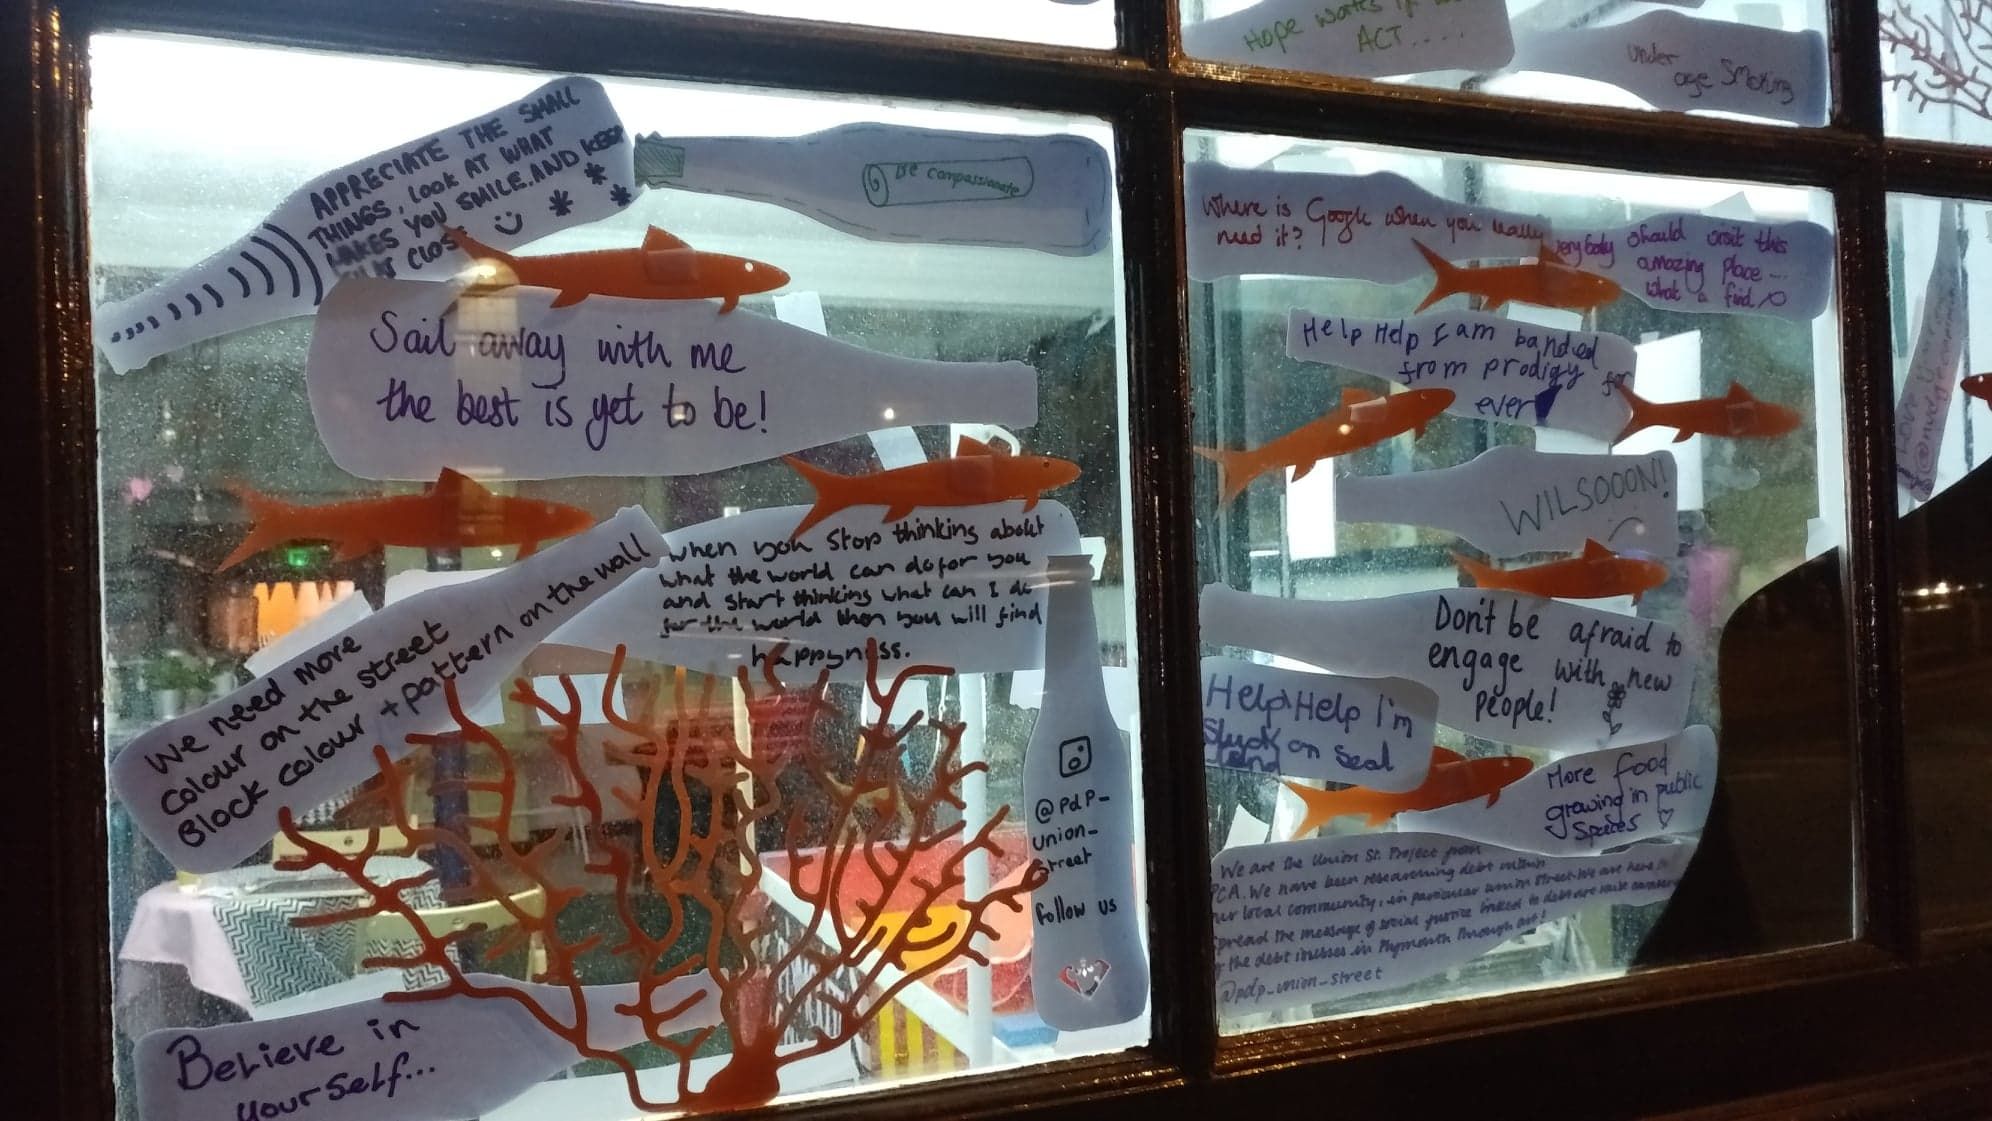 APPRECIATE THE SMALL
THINGS, LOOK AT WHAT
MAKES YOU SMILE. AND KEEP
THAT CLOSE
Be compassionate
Sail away with me
the best is yet to be!
when you stop thinking about
what the world can do for you
and start thinking what can I do
for the world then you will find
happyness.
We need more
colour on the street
Block colour + pattern on the wall
@PdP-
Union-
Street
follow us
Believe in
yourself...
Hope works if
ACT....
Under
age Smoking
Where is Google when you really
need it?
everybody should visit this
amazing place...
what a find
Help Help I am banded
from prodigy for
ever
WILSOOON!
Don't be afraid to
engage with new
People!
Help Help I'm
Stuck on Seal
Island
More food
growing in public
Spaces
We are the Union St. Project from
PCA. We have been researching debt within
our local community, in particular Union Street. We are here to
spread the message of social justice linked to debt and raise
the debt in Plymouth through art!
@pdp_union_street
Love your